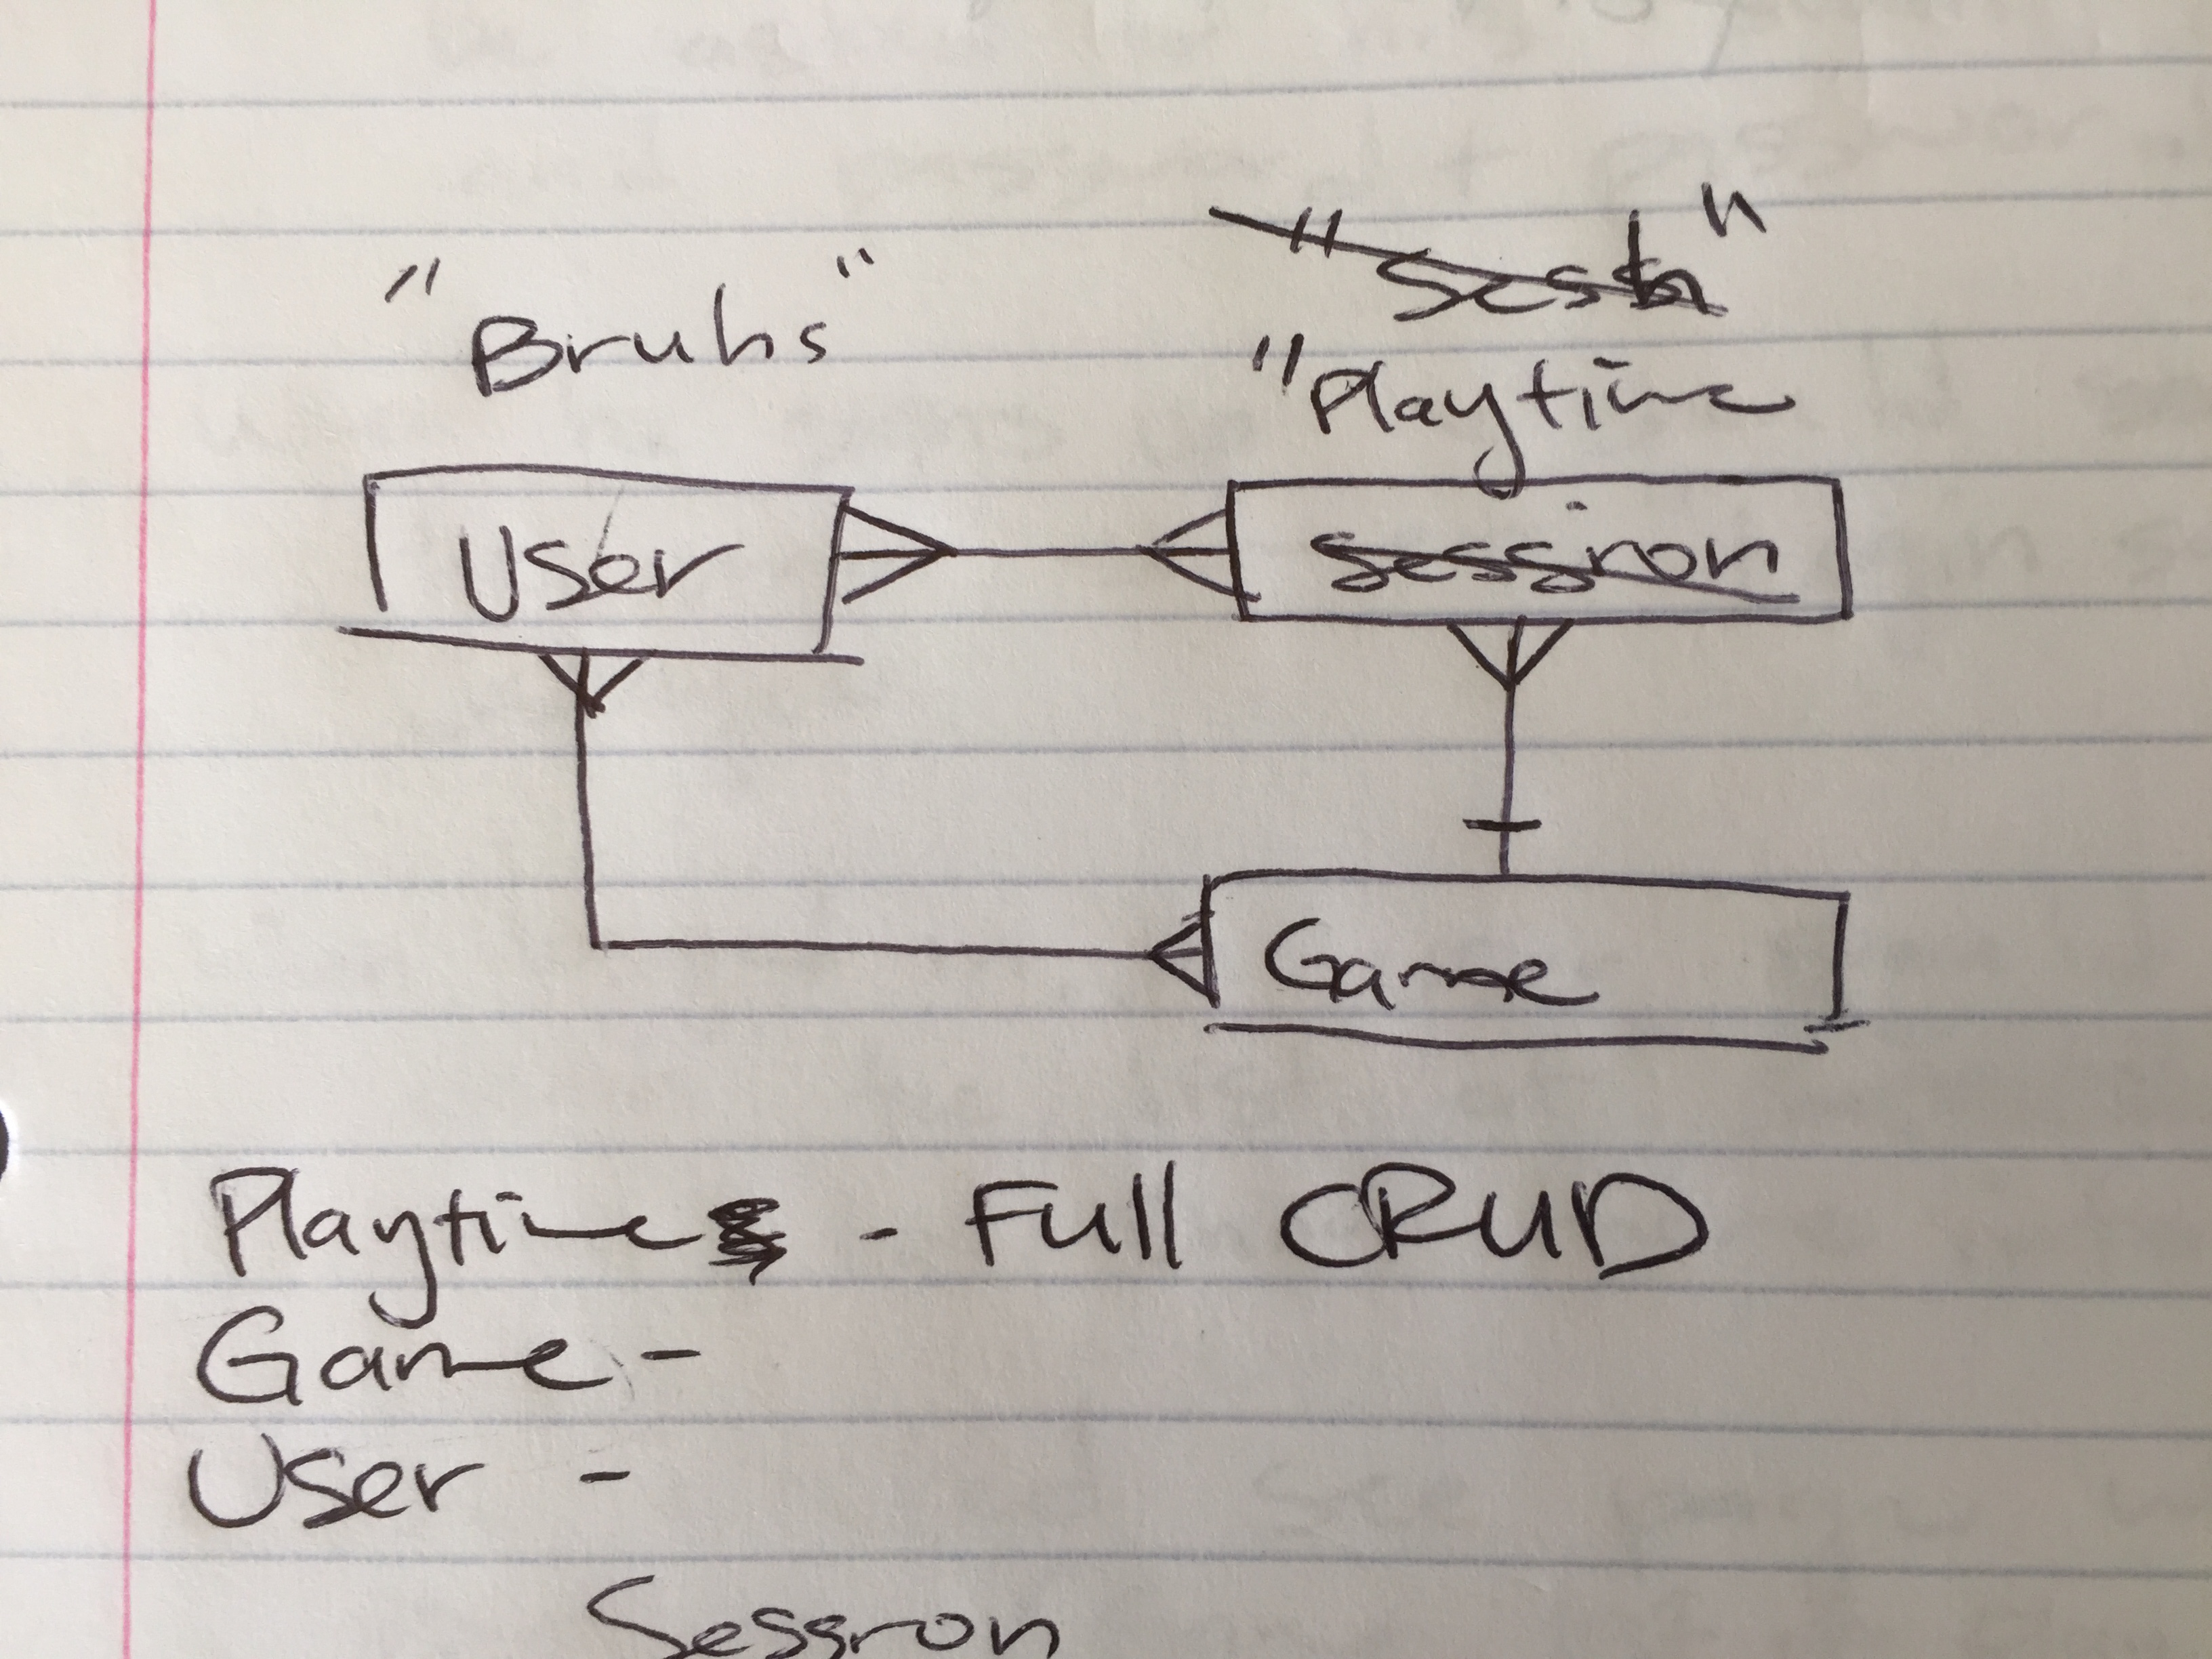 "Bruhs"
"Sesh"
"Playtime
User
session
Game
Playtime - Full CRUD
Game -
User -
Session